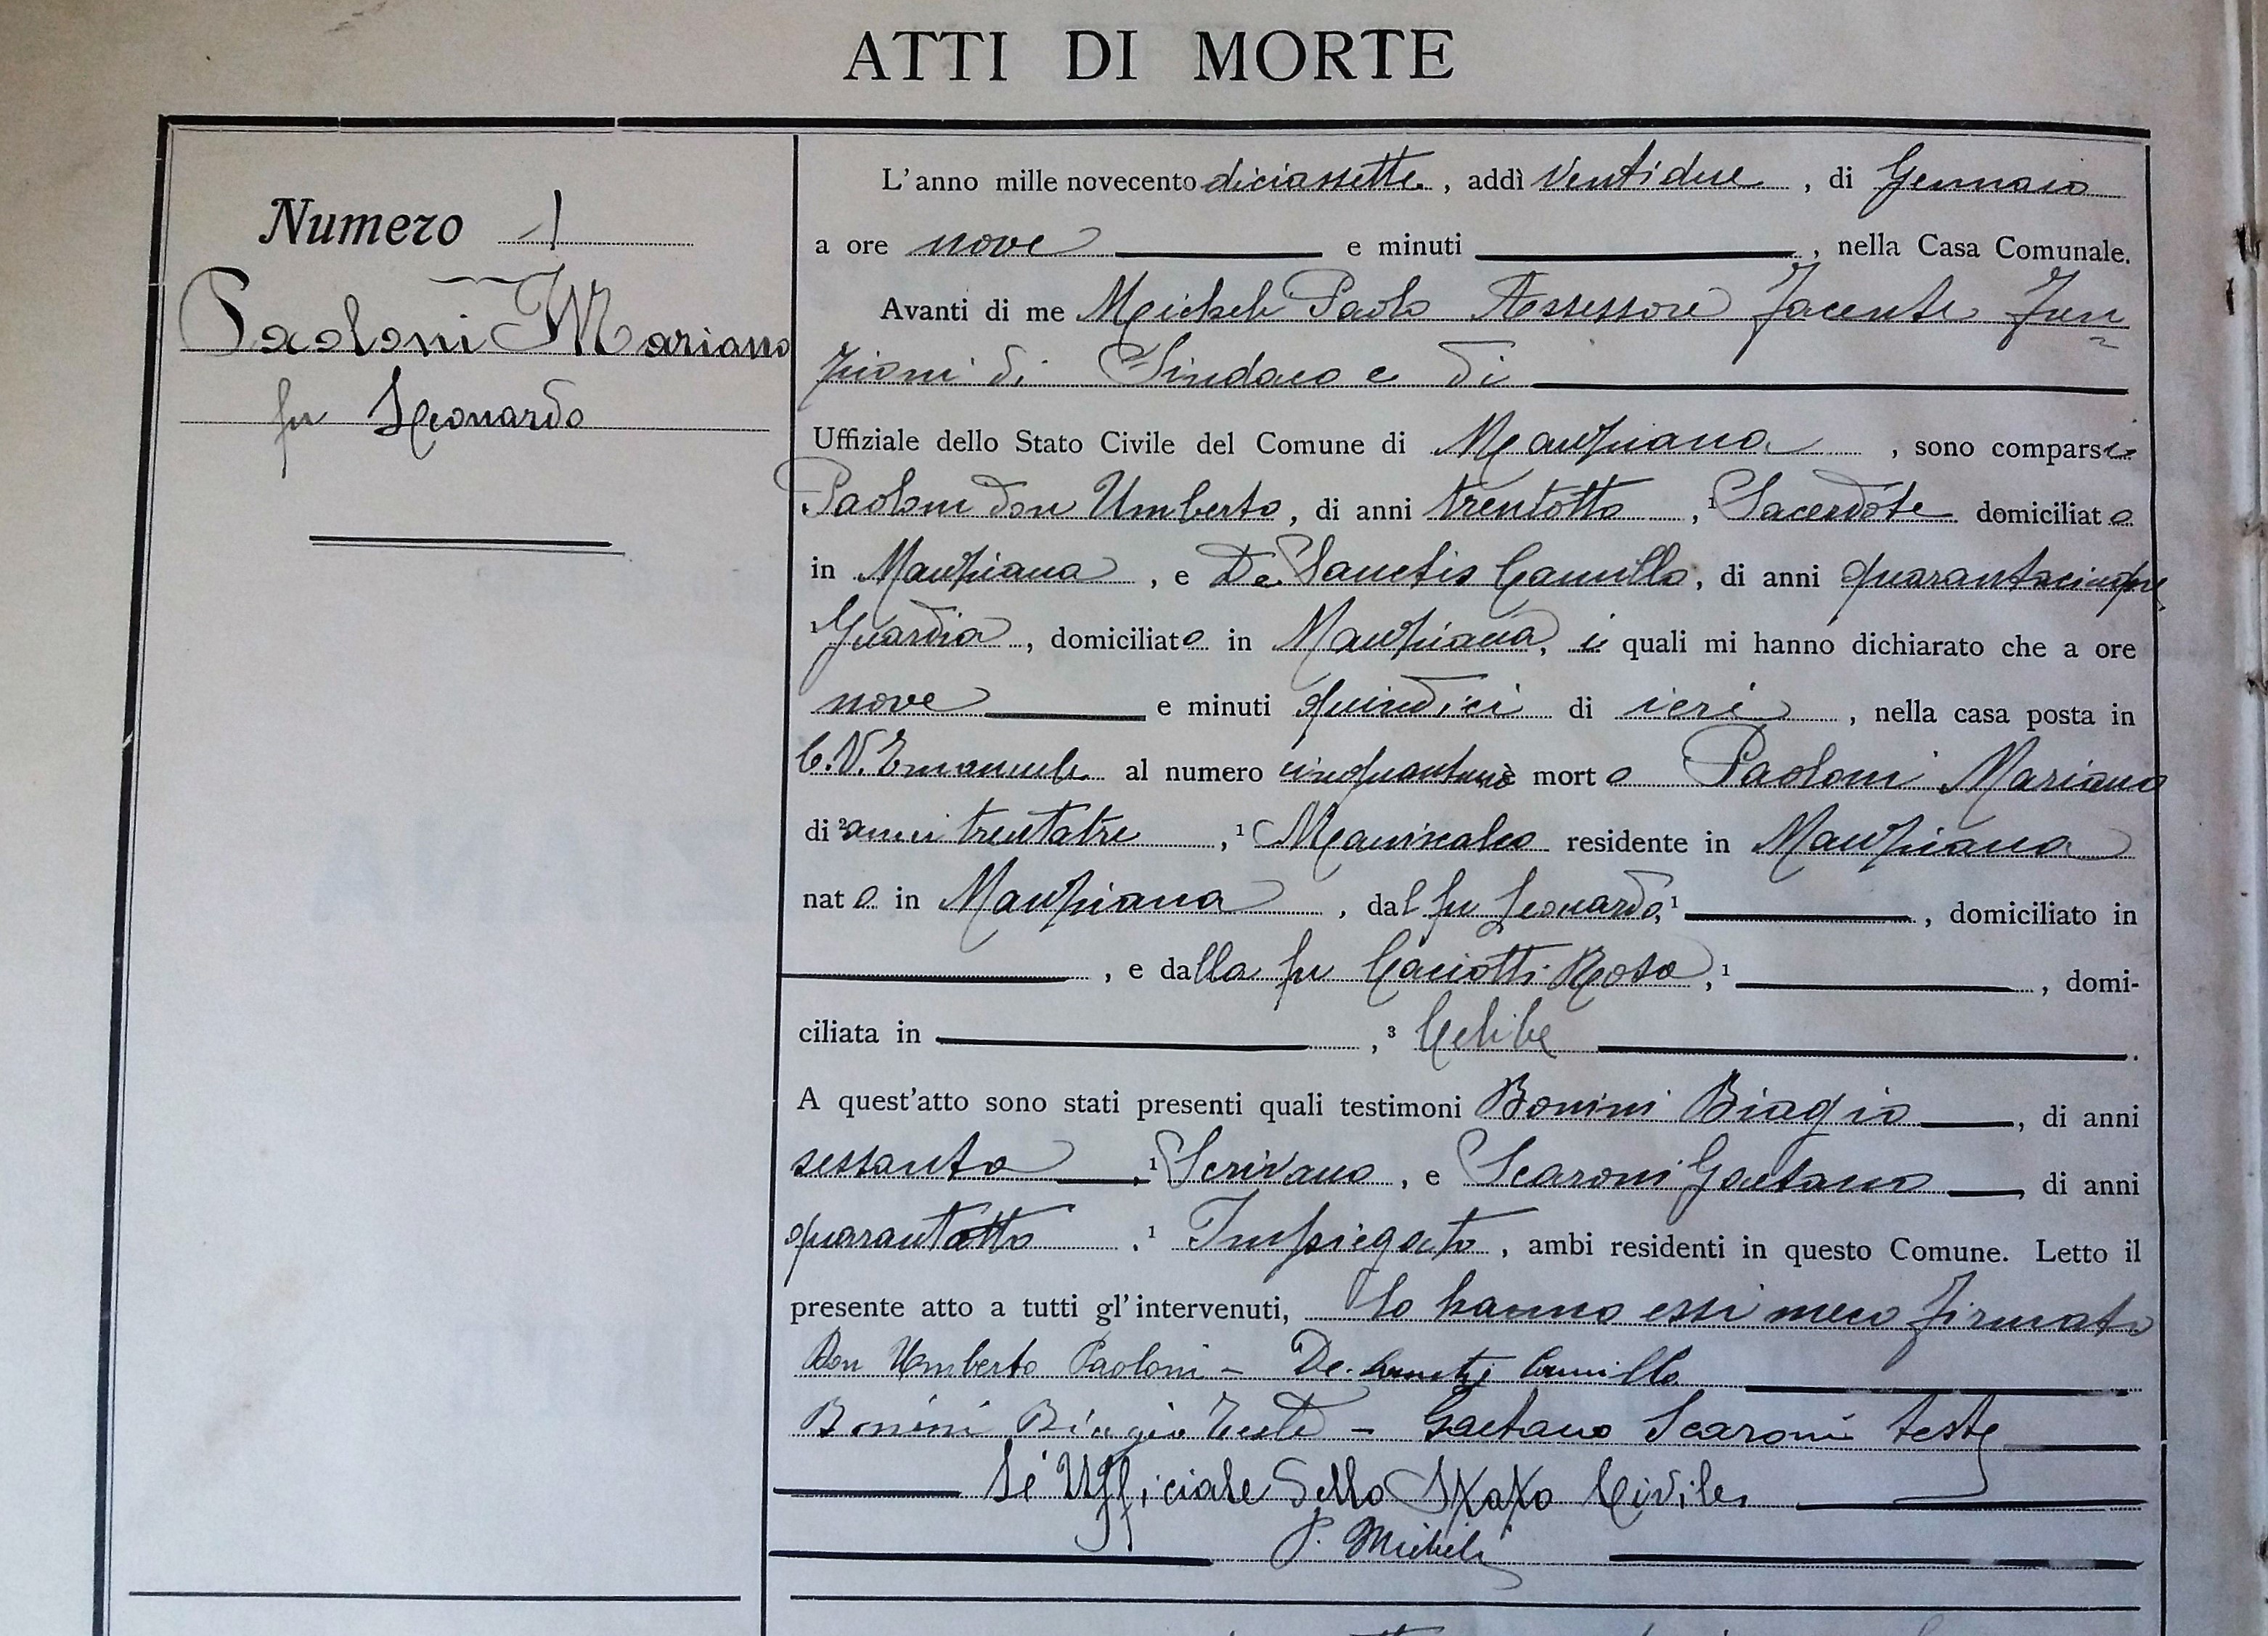 ATTI DI MORTE
Numero 1
Paoloni Mariano
fu Leonardo
L'anno mille novecento diciassette, addì Ventidue, di Gennaio
a ore nove e minuti , nella Casa Comunale.
Avanti di me Micheli Paolo Assessore facente Fun
zioni di Sindaco e di
Uffiziale dello Stato Civile del Comune di , sono comparsi
Paoloni don Umberto, di anni trentotto, ¹ Sacerdote domiciliato
in , e De Sanctis Camillo, di anni quarantacinque
¹ Guardia, domiciliato in , i quali mi hanno dichiarato che a ore
nove e minuti quindici di ieri, nella casa posta in
C. V. Emanuele al numero cinquantuno morto Paoloni Mariano
di ² anni trentatre, ¹ Maniscalco residente in
nato in , dal fu Leonardo, ¹ , domiciliato in
, e dalla fu Caciotti Rosa, ¹ , domi-
ciliata in , ³ Celibe .
A quest'atto sono stati presenti quali testimoni Bonini Biagio, di anni
sessanta, ¹ Scrivano, e Scaroni Gaetano, di anni
quarantotto, ¹ Impiegato, ambi residenti in questo Comune. Letto il
presente atto a tutti gl'intervenuti, lo hanno essi meco firmato
Don Umberto Paoloni – De Sanctis Camillo
Bonini Biagio Teste – Gaetano Scaroni teste
Ufficiale dello Stato Civile
P. Micheli